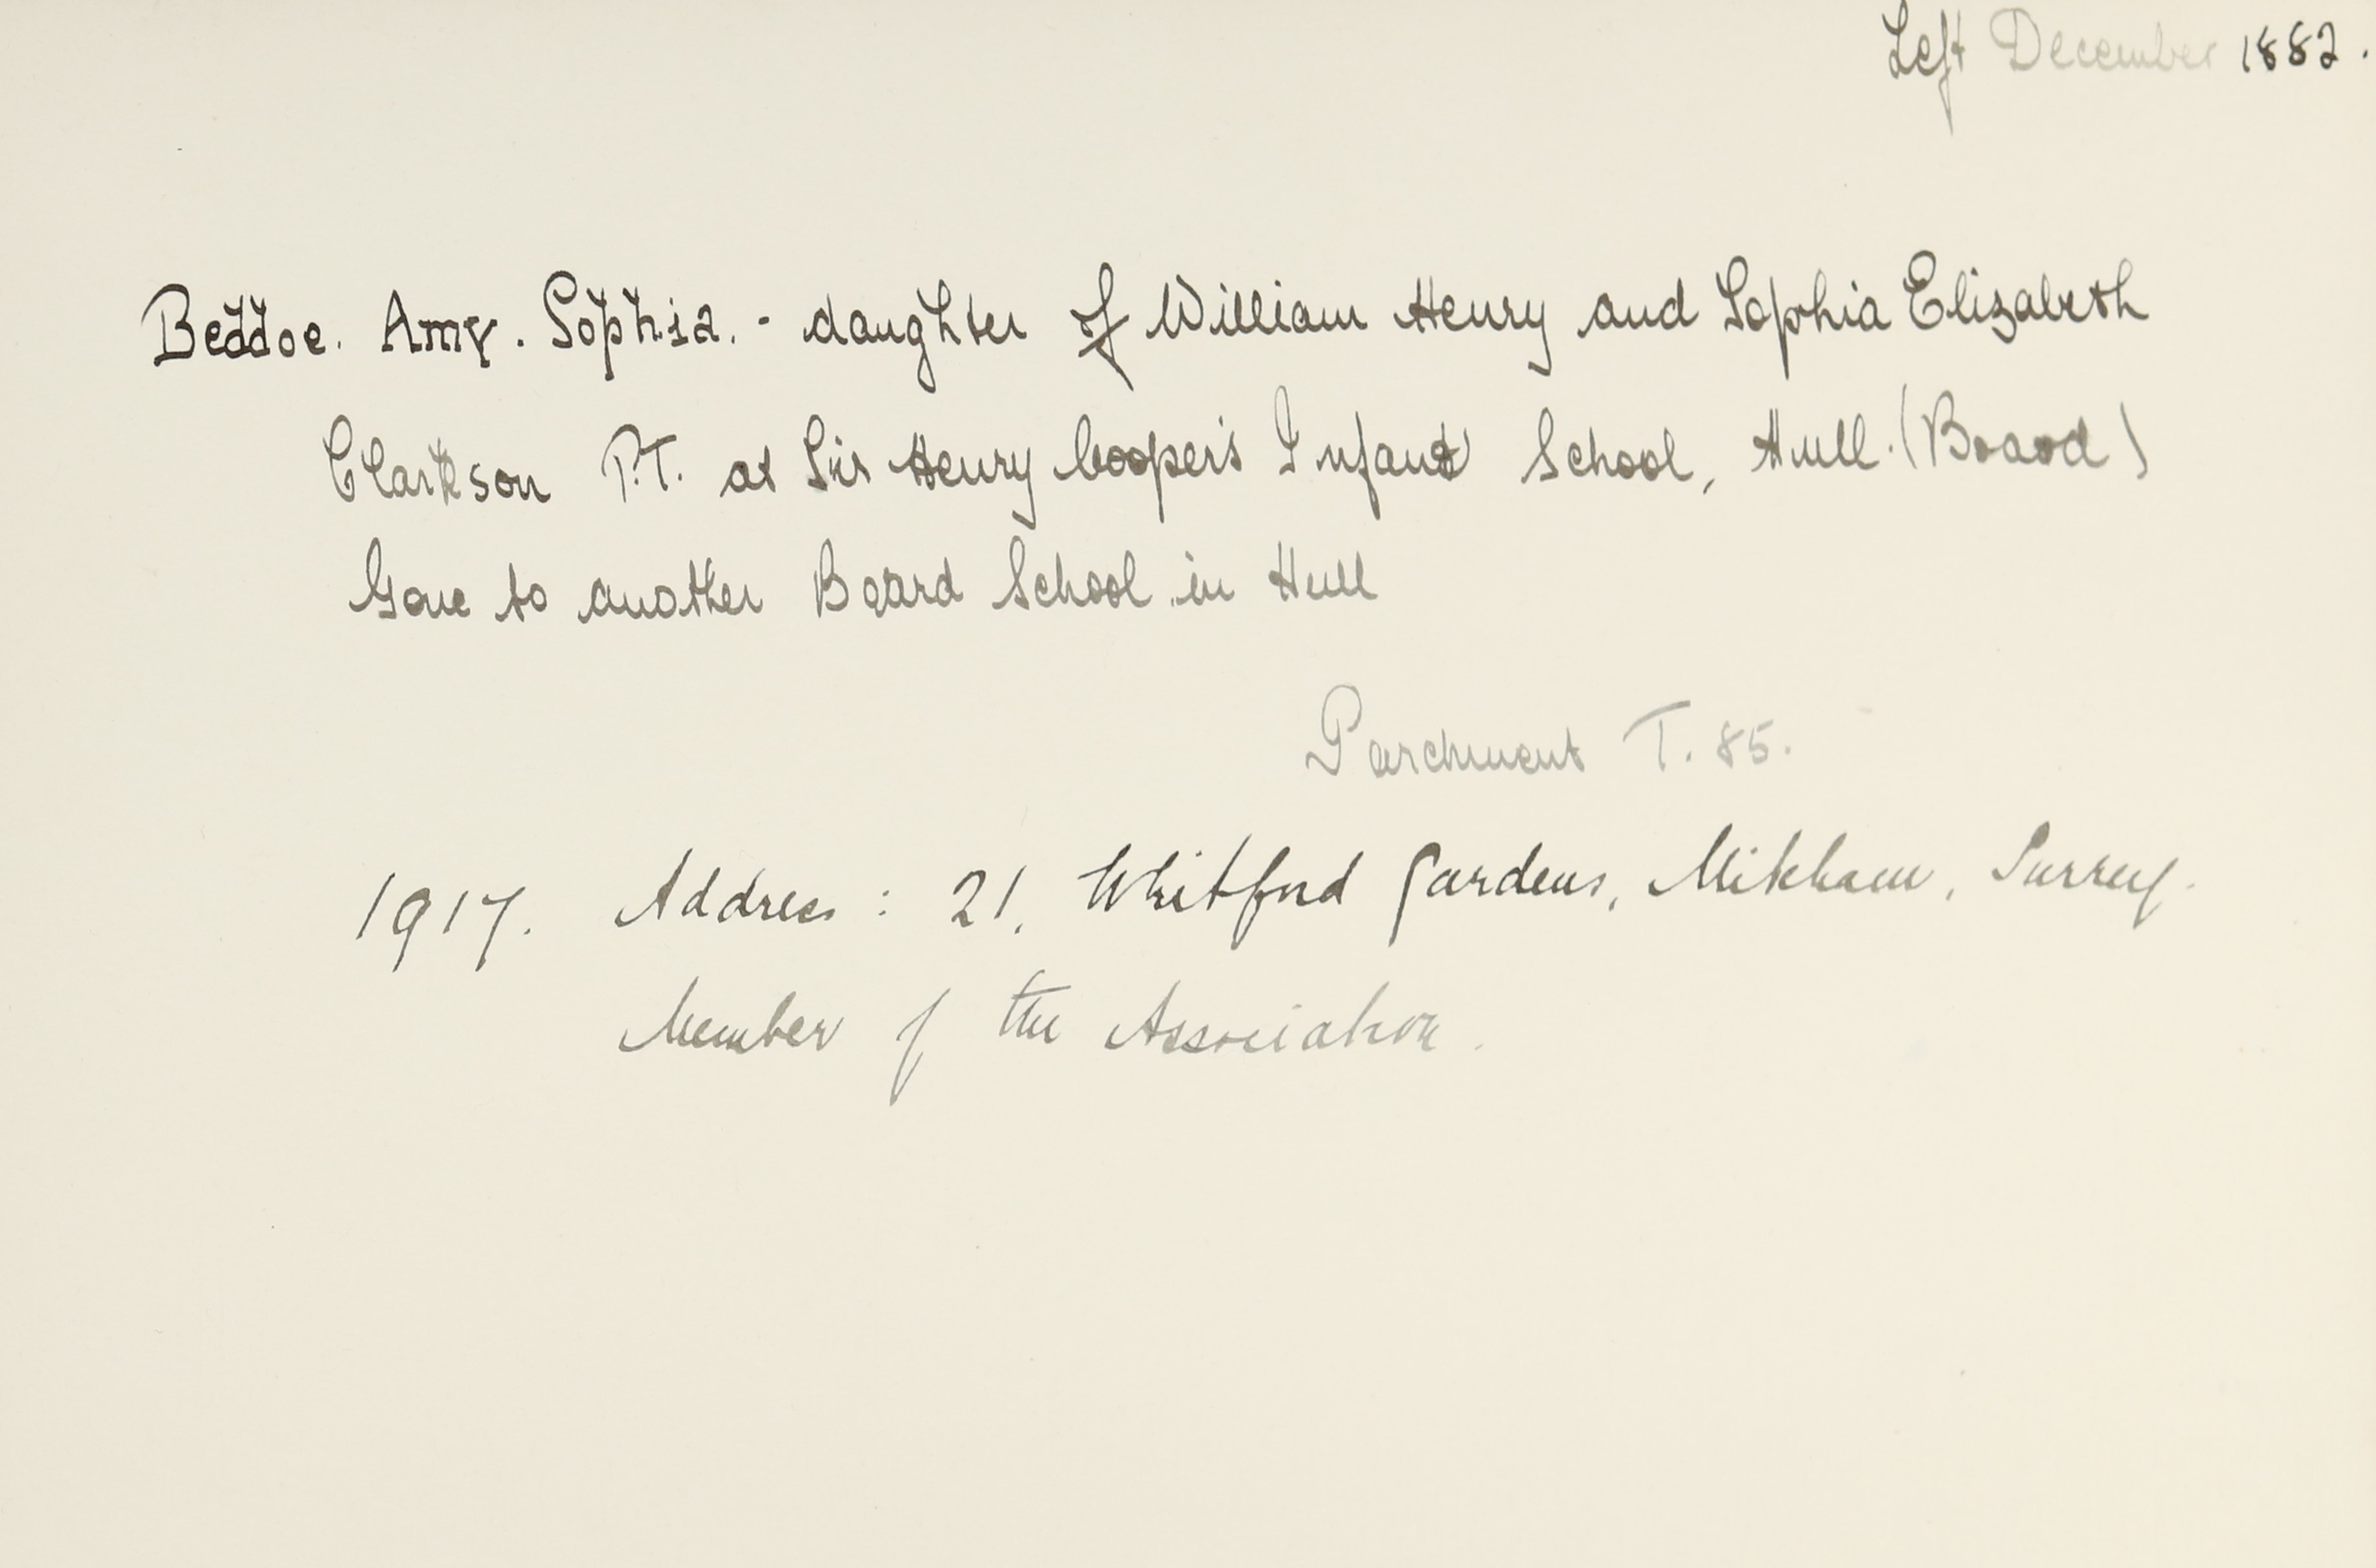 Left December 1882.
Beddoe. Amy. Sophia. - daughter of William Henry and Sophia Elizabeth
Clarkson P.T. at Sir Henry Cooper's Infant School, Hull. (Board)
Gone to another Board School in Hull
Parchment T. 85.
1917. Address : 21, Whitford Gardens, Mitcham, Surrey.
Member of the Association.